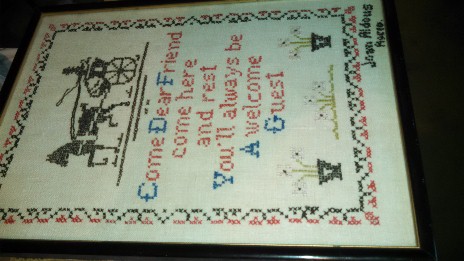 Come Dear Friend
come here
and rest
You'll always be
A welcome
Guest
Joan Aldous